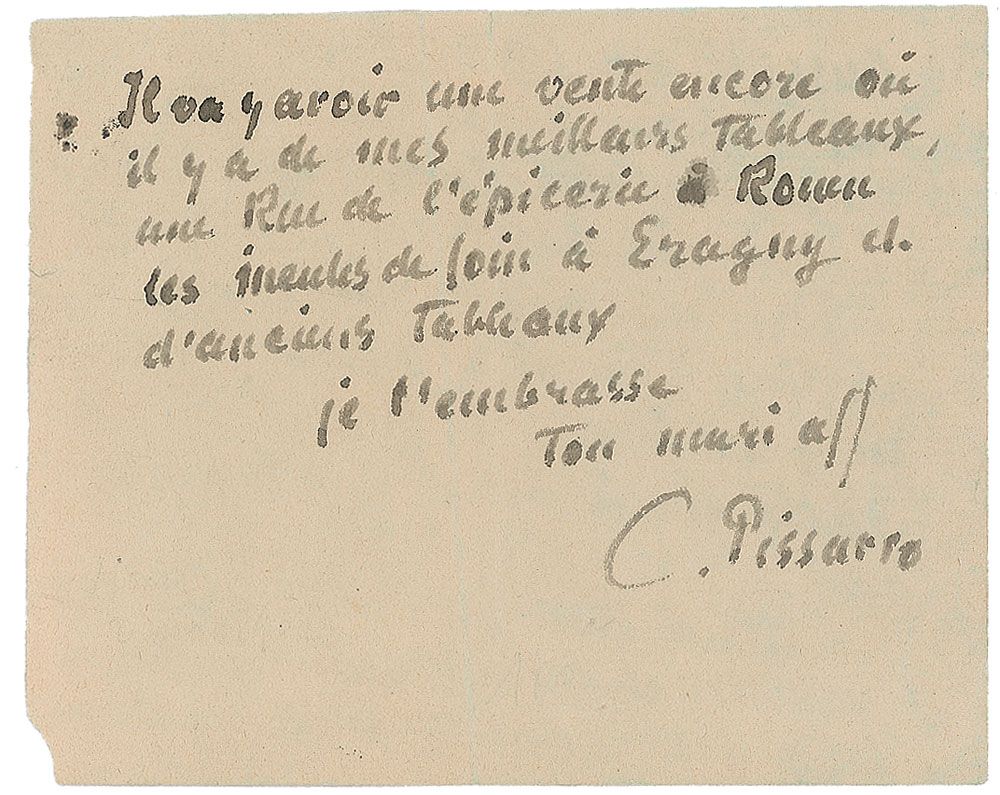 Il va y avoir une vente encore où
il y a de mes meilleurs Tableaux,
une Rue de l'épicerie à Rouen
les meules de foin à Eragny et.
d'anciens Tableaux
je t'embrasse
Ton mari aff
C. Pissarro